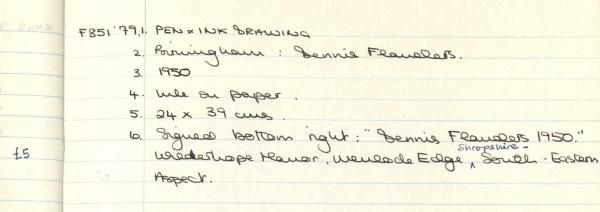 F851'79,1. PEN & INK DRAWING
2. Birmingham : Dennis Flanders.
3. 1950
4. Ink on paper.
5. 24 x 39 cms.
6. Signed bottom right: "Dennis Flanders 1950."
Shropshire -
£5 Wilderhope Manor, Wenlock Edge, ^ South-Eastern
Aspect.